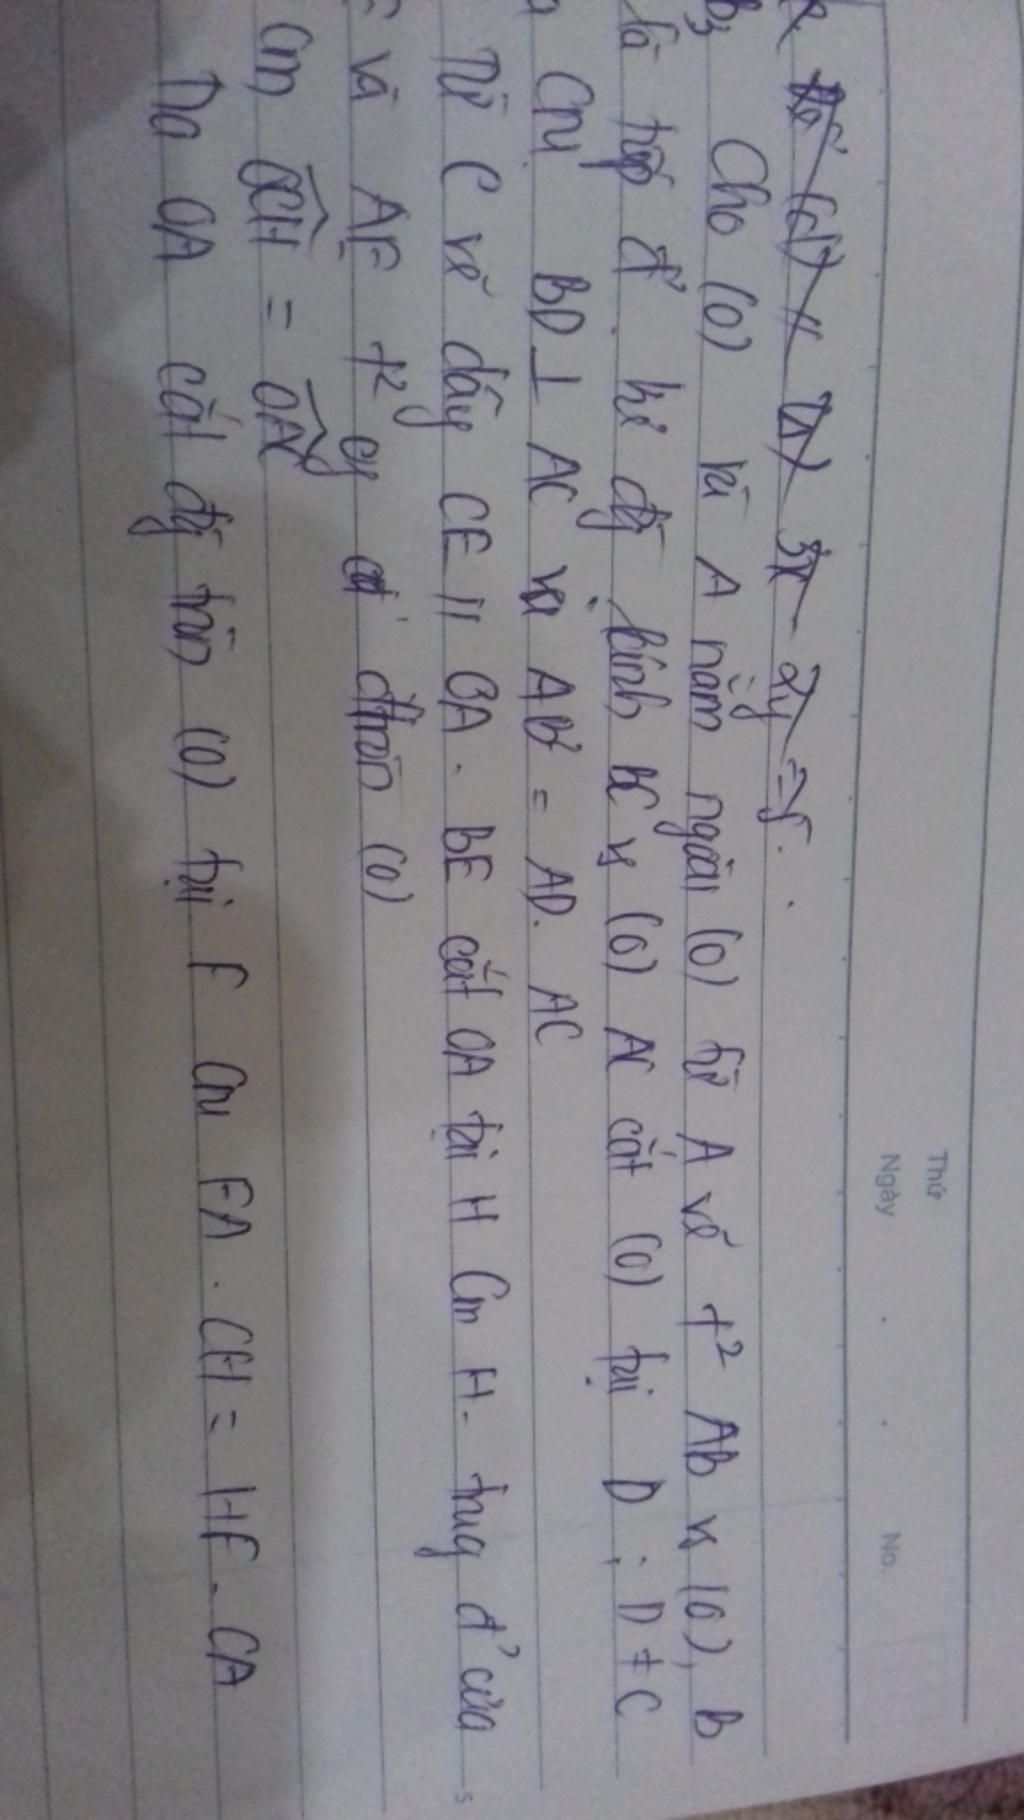 Thứ
Ngày
No.
3x - 2y = 5.
B3 Cho (O) và A nằm ngoài (O) từ A vẽ t² AB vs (O), B
là tiếp đ'. kẻ đg kính BC vs (O) AC cắt (O) tại D; D ≠ C
a Cm BD ⊥ AC và AB² = AD. AC
Từ C vẽ dây CE // OA. BE cắt OA tại H Cm H- trug đ' của
E và AE t² cụ đtròn (O)
Cm OCH = OAC
Tia OA cắt đg tròn (O) tại F Cm FA. CH = HF. CA
5